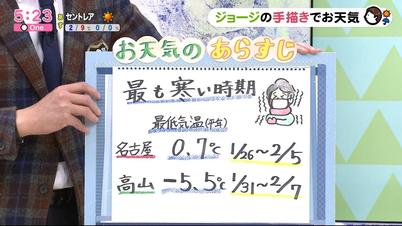 5:23
One
セントレア
2/9 0/0%
ジョージの手描きでお天気
お天気のあらすじ
最も寒い時期
最低気温(平年)
名古屋 0.7℃ 1/26〜2/5
高山 -5.5℃ 1/31〜2/7